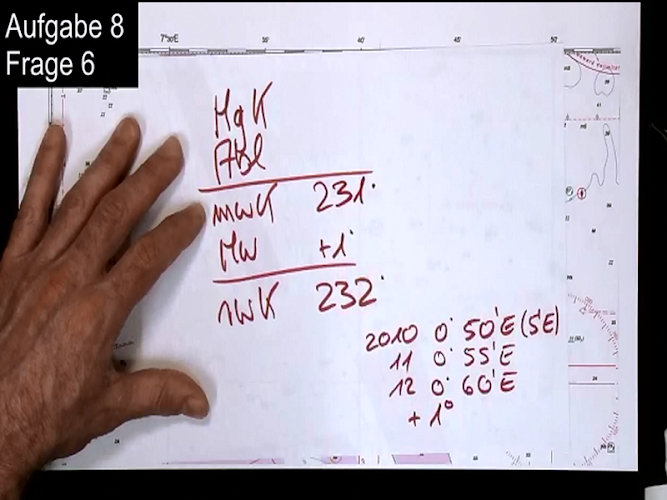 Aufgabe 8
Frage 6
7°30'E
35'
40'
45'
50'
MgK
Abl
mwK 231°
MW +1°
rwK 232°
2010 0° 50'E (5'E)
11 0° 55'E
12 0° 60'E
+ 1°